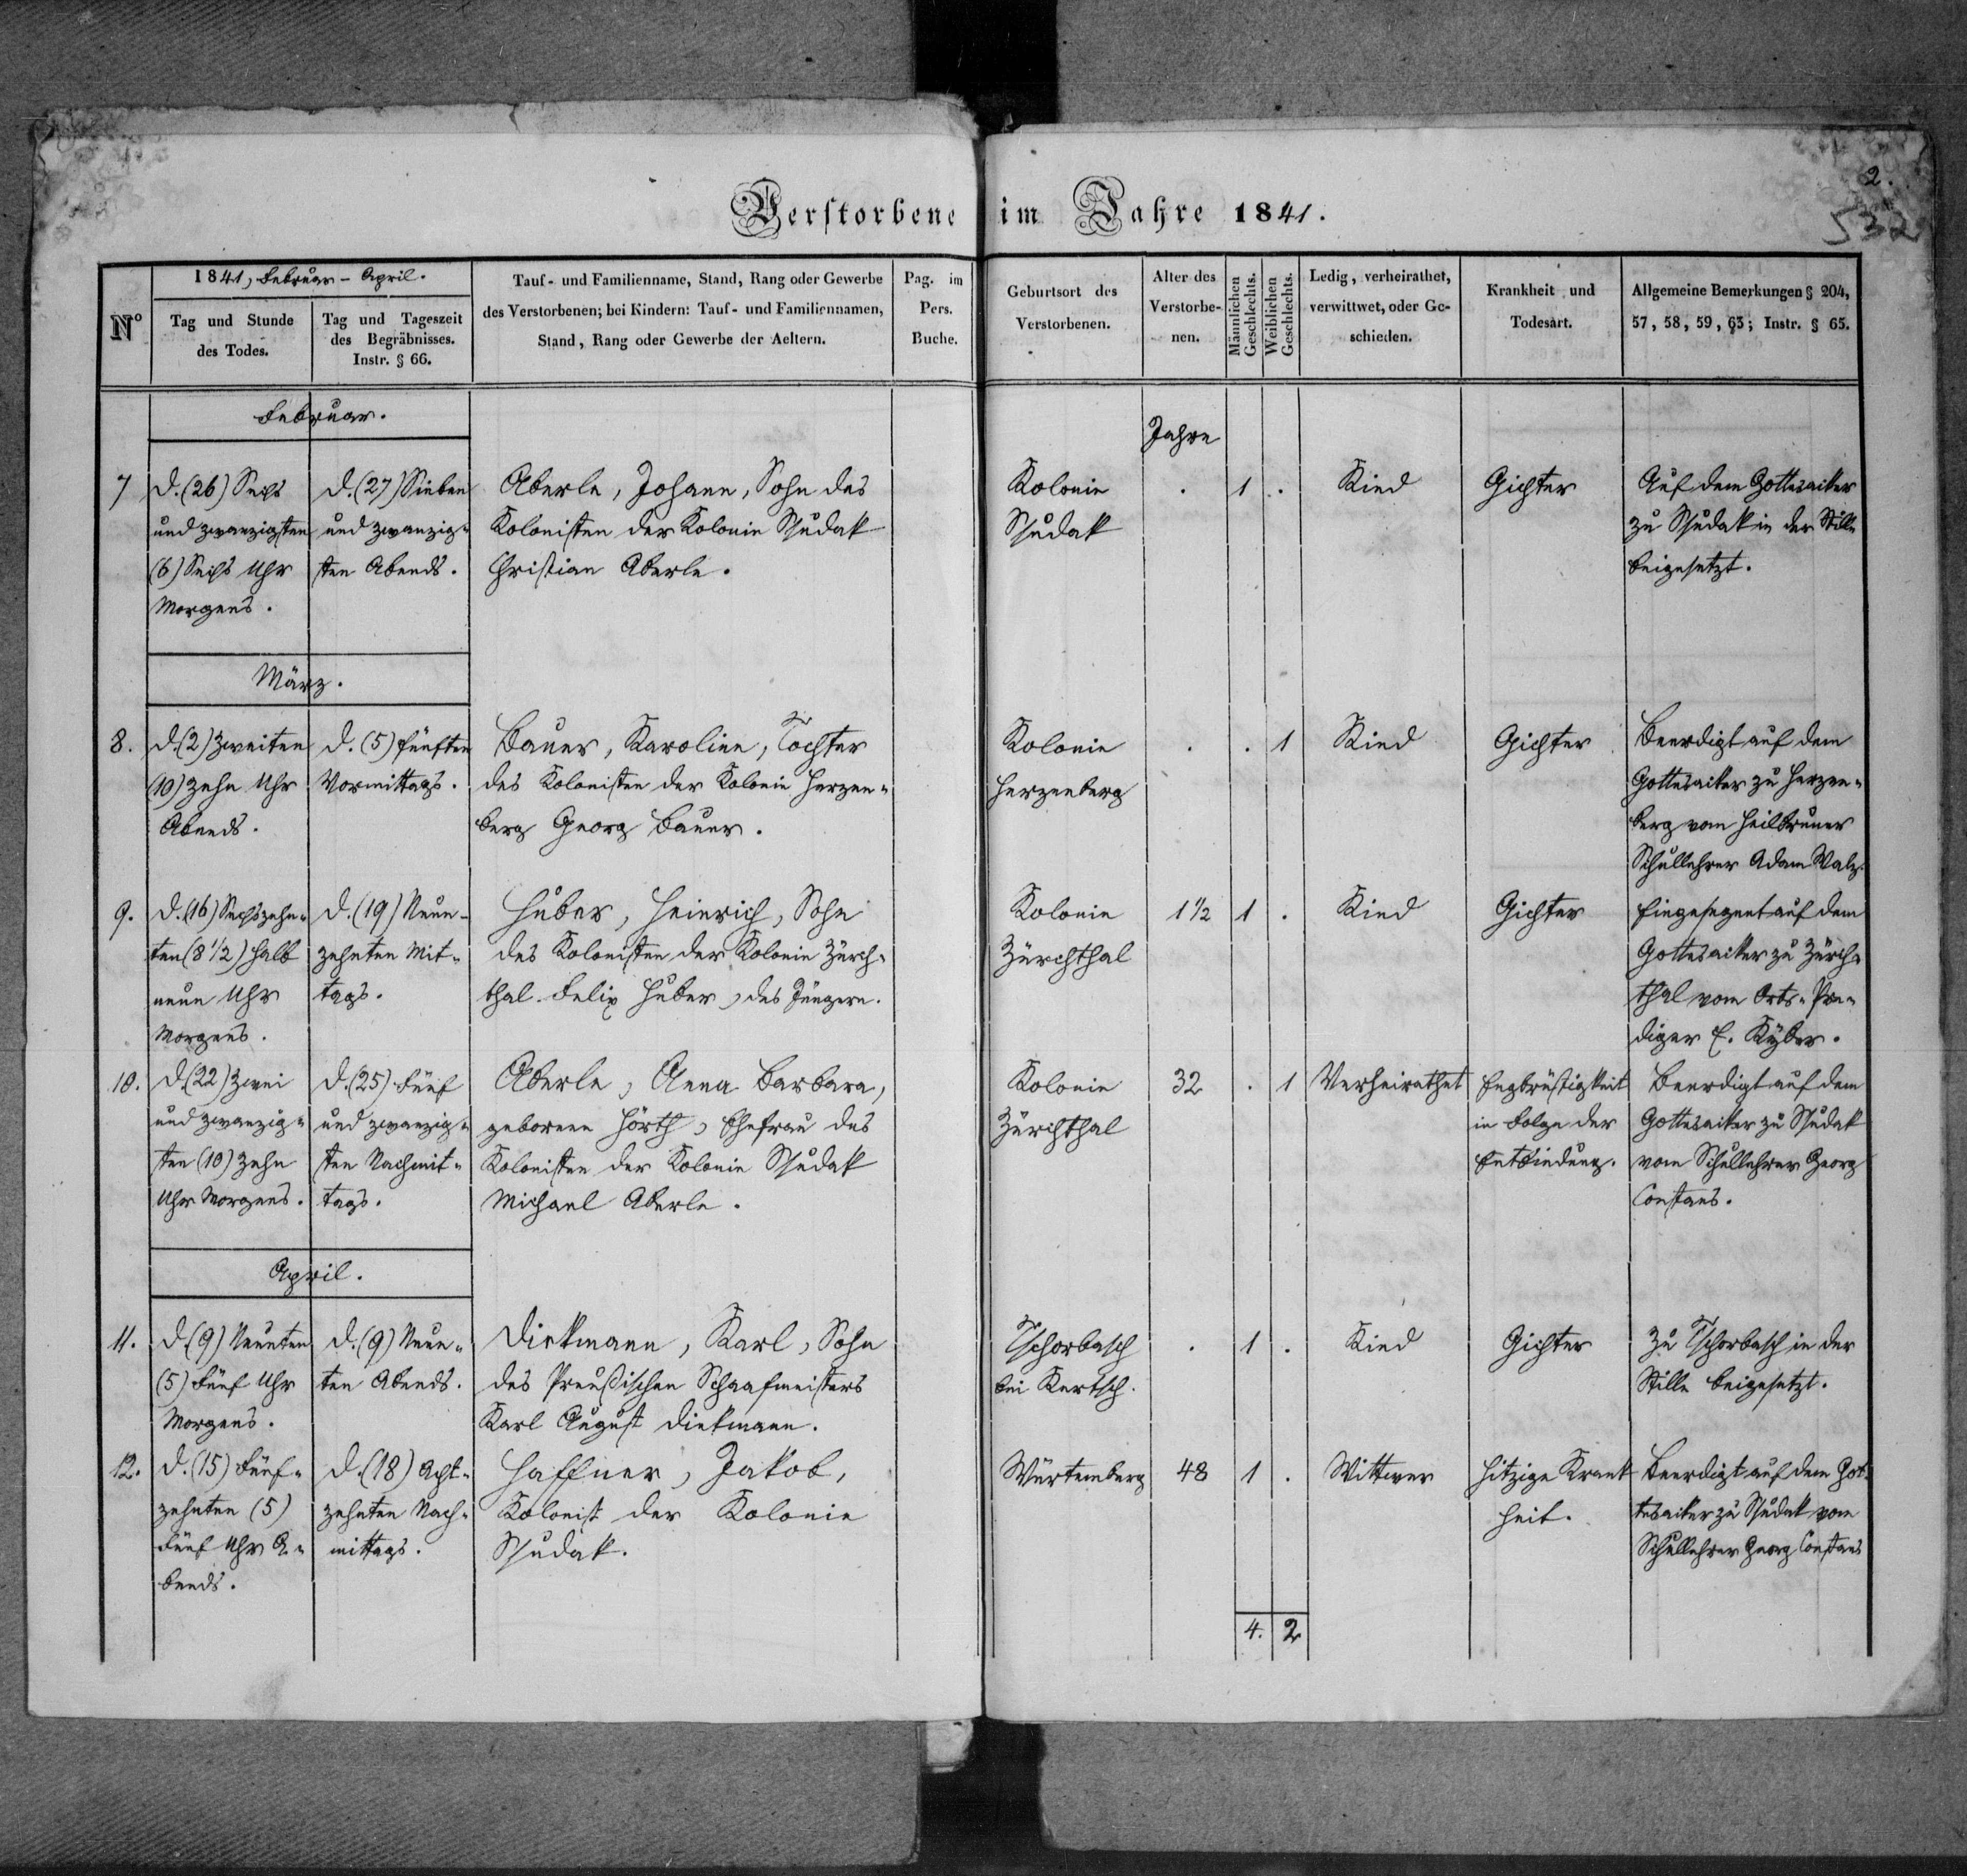 2.
532
Verstorbene im Jahre 1841.
1841, Februar - April.
Nº
Tag und Stunde
des Todes.
Tag und Tageszeit
des Begräbnisses.
Instr. § 66.
Tauf- und Familienname, Stand, Rang oder Gewerbe
des Verstorbenen; bei Kindern: Tauf- und Familiennamen,
Stand, Rang oder Gewerbe der Aeltern.
Pag. im
Pers.
Buche.
Geburtsort des
Verstorbenen.
Alter des
Verstorbe-
nen.
Männlichen
Geschlechts.
Weiblichen
Geschlechts.
Ledig, verheirathet,
verwittwet, oder Ge-
schieden.
Krankheit und
Todesart.
Allgemeine Bemerkungen § 204,
57, 58, 59, 63; Instr. § 65.
Februar.
Jahre
7
d. (26) Sechs
und zwanzigsten
(6) Sechs Uhr
Morgens.
d. (27) Sieben
und zwanzig-
sten Abends.
Aberle, Johann, Sohn des
Kolonisten der Kolonie Ssudak
Christian Aberle.
Kolonie
Ssudak
.
1
.
Kind
Gichter
Auf dem Gottesacker
zu Ssudak in der Stille
beigesetzt.
März.
8.
d. (2) Zweiten
(10) Zehn Uhr
Abends.
d. (5) Fünften
Vormittags.
Bauer, Karoline, Tochter
des Kolonisten der Kolonie Herzen-
berg Georg Bauer.
Kolonie
Herzenberg
.
.
1
Kind
Gichter
Beerdigt auf dem
Gottesacker zu Herzen-
berg vom Heilbruner
Schullehrer Adam Walz.
9.
d. (16) Sechszehn-
ten (8 1/2) halb
neun Uhr
Morgens.
d. (19) Neun-
zehnten Mit-
tags.
Huber, Heinrich, Sohn
des Kolonisten der Kolonie Zürch-
thal Felix Huber, des Jüngern.
Kolonie
Zürchthal
1 1/2
1
.
Kind
Gichter
Eingesegnet auf dem
Gottesacker zu Zürch-
thal vom Orts-Pre-
diger E. Kyber.
10.
d. (22) Zwei
und zwanzig-
sten (10) Zehn
Uhr Morgens.
d. (25) Fünf
und zwanzig-
sten Nachmit-
tags.
Aberle, Anna Barbara,
geborene Hörth, Ehefrau des
Kolonisten der Kolonie Ssudak
Michael Aberle.
Kolonie
Zürchthal
32
.
1
Verheirathet
Engbrüstigkeit
in Folge der
Entbindung.
Beerdigt auf dem
Gottesacker zu Ssudak
vom Schullehrer Georg
Constans.
April.
11.
d. (9) Neunten
(5) Fünf Uhr
Morgens.
d. (9) Neun-
ten Abends.
Diekmann, Karl, Sohn
des Preußischen Schaafmeisters
Karl August Diekmann.
Tschorbasch
bei Kertsch.
.
1
.
Kind
Gichter
Zu Tschorbasch in der
Stille beigesetzt.
12.
d. (15) Fünf-
zehnten (5)
Fünf Uhr A-
bends.
d. (18) Acht-
zehnten Nach-
mittags.
Haffner, Jakob,
Kolonist der Kolonie
Ssudak.
Würtemberg
48
1
.
Wittwer
Hitzige Krank
heit.
Beerdigt auf dem Got-
tesacker zu Ssudak vom
Schullehrer Georg Constans
4.
2